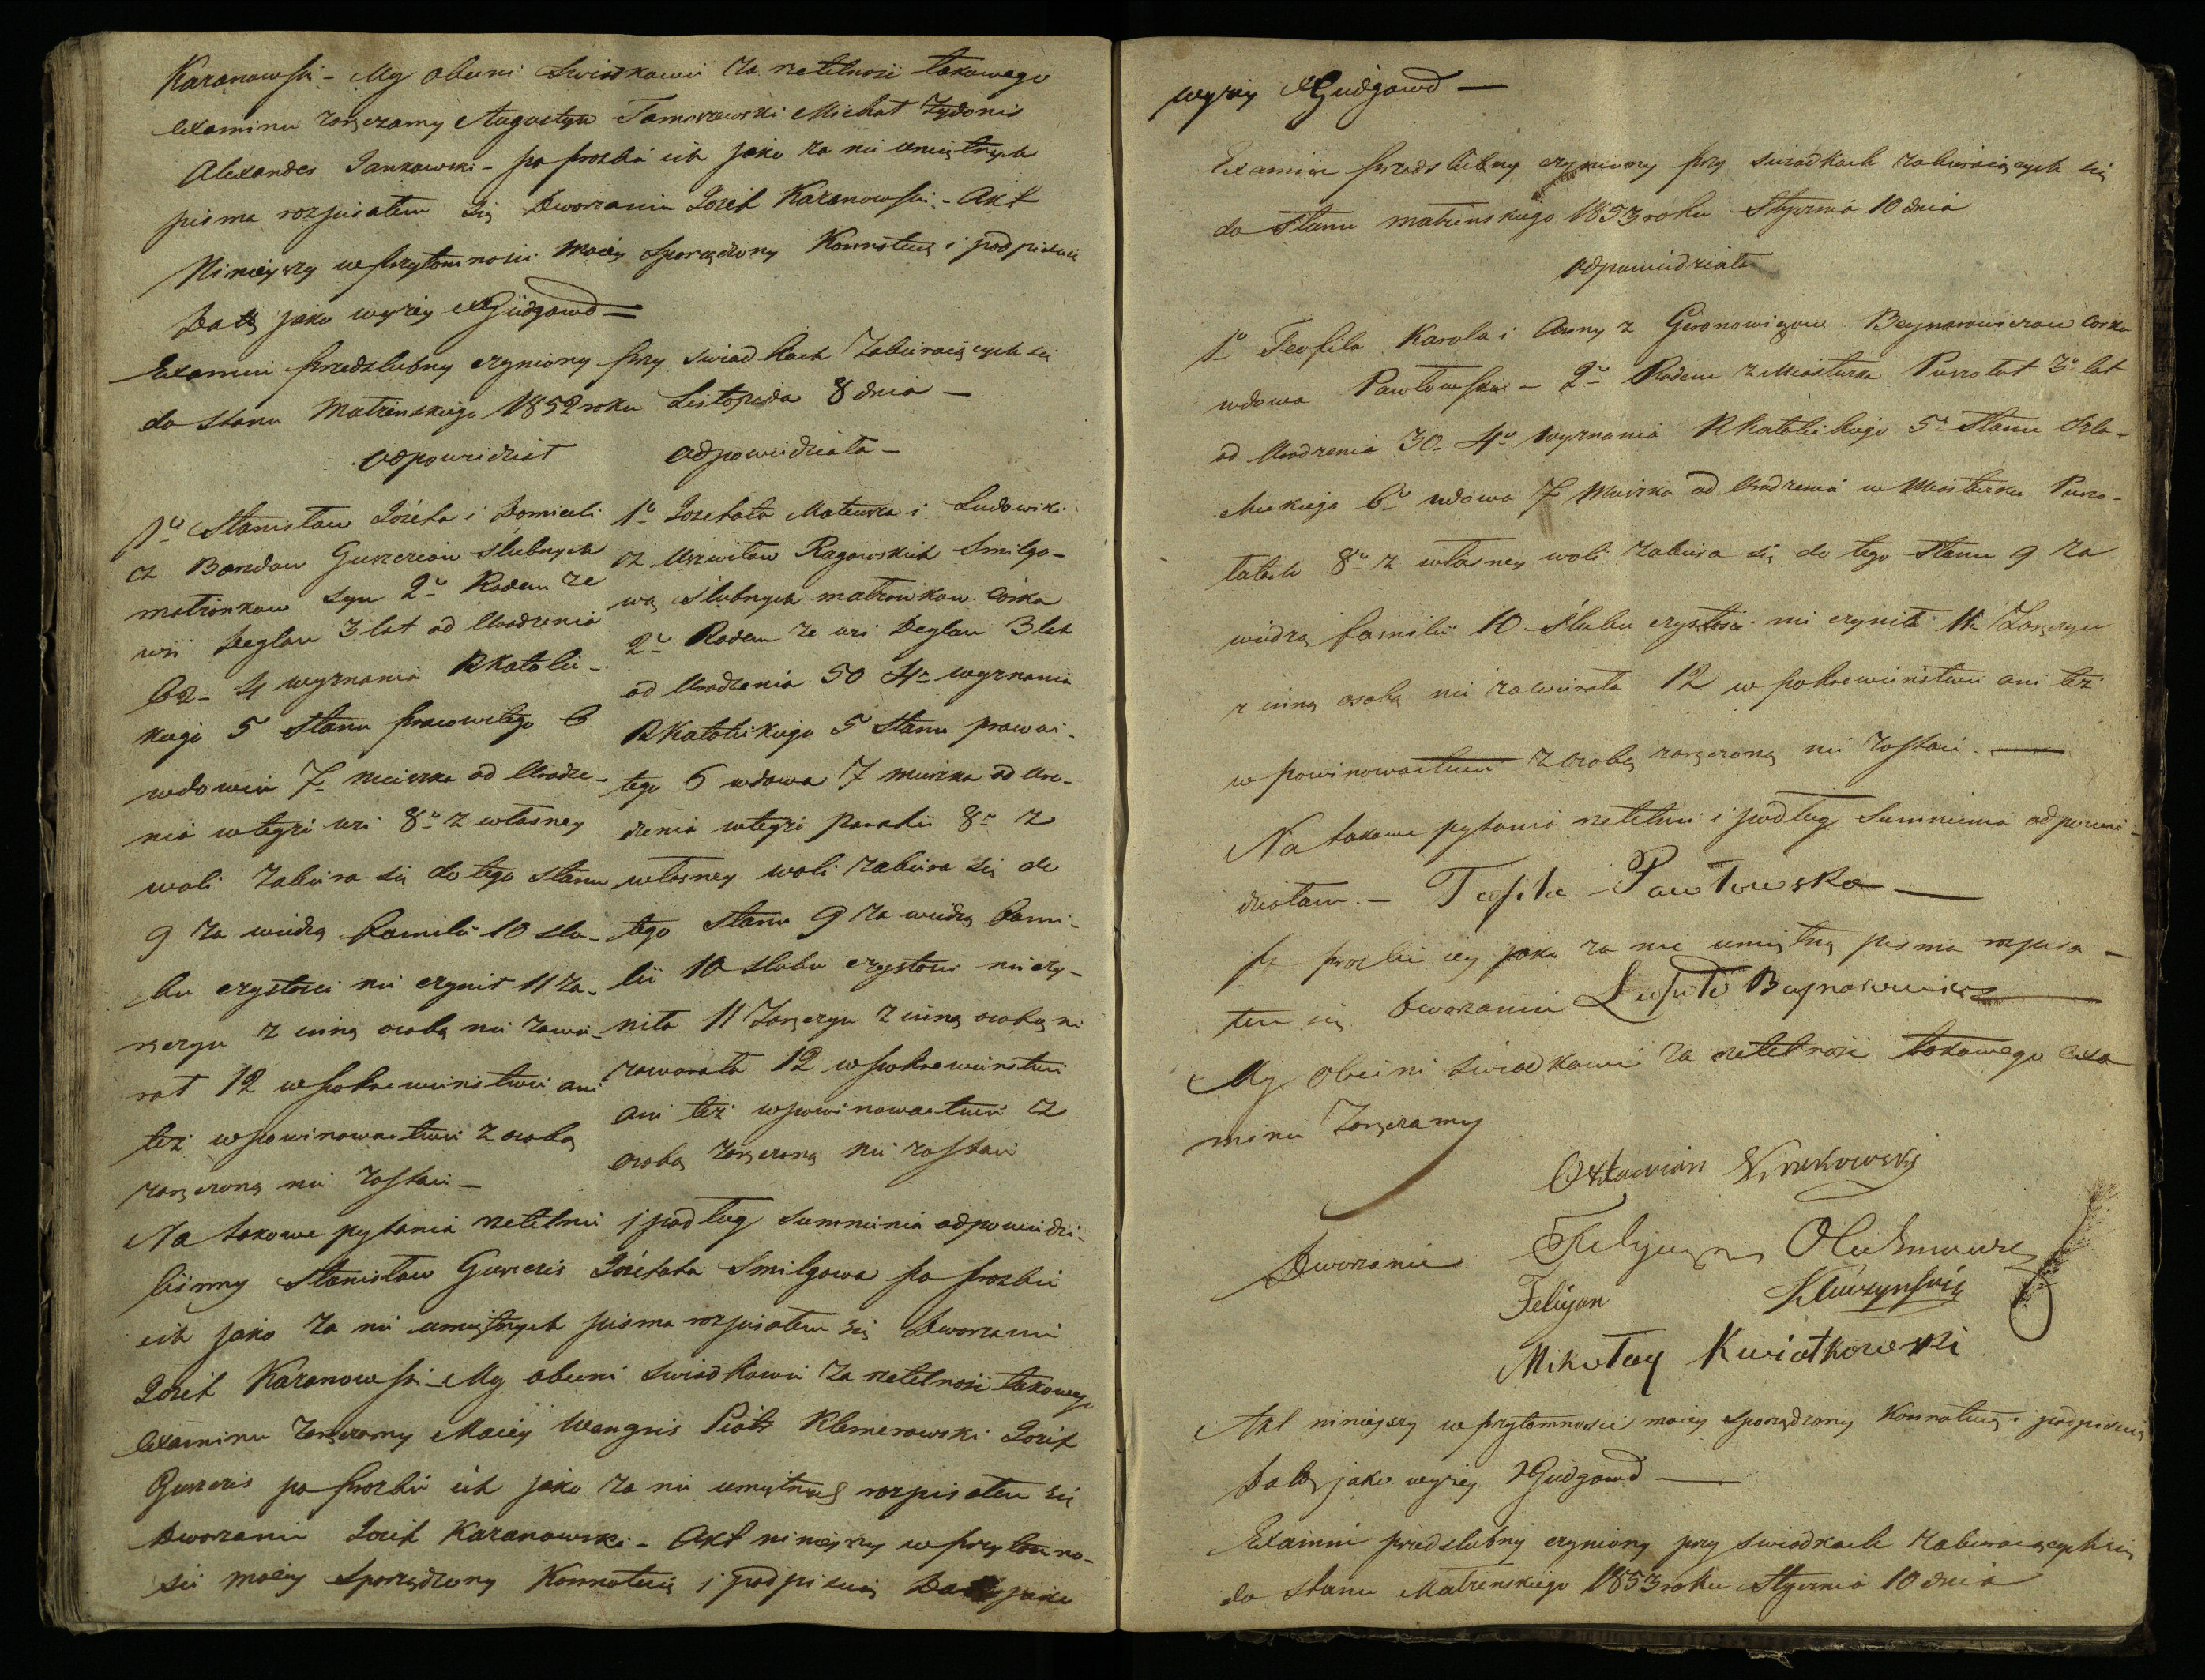 Karanowski - My obecni Swiadkowie za rzetelność takowego
Examinu zaręczamy Augustyn Tamoszewski Michał Żydonis
Alexander Jankowski - po prozbie ich jako za nie umiętnych
pisma rozpisałem się Dworzanin Jozef Karanowski - Akt
Ninieyszy w przytomności moiey sporządzony Konnotuię i podpisuię
Datą jako wyżey Gudgowd
Examin przedzlubny czyniony przy swiadkach Zabieraiących się
do stanu Matżenskiego 1852 roku Listopada 8 dnia -
odpowiedział
1o Stanisław Józefa i Domiceli
z Gurzciow slubnych
matżonkow syn 2o Rodem ze
wsi Deglan 3 lat od Urodzenia
62 - 4 wyznania RKatolic-
kiego 5 Stanu pracowitego 6
wdowiec 7 mieszka od Urodze-
nia w teyże wsi 8o z własney
woli zabiera się do tego stanu
9 za wiedzą familii 10 slu-
bu czystości nie czynił 11 za-
ręczyn z inną osobą nie zawie-
rał 12 w pokrewieństwie ani
też w powinowactwie z osobą
zaręczoną nie zostaie -
odpowiedziała -
1o Jozefata Mateusza i Ludowiki
z Ragowskich Smilgo-
wa slubnych matżonkow córka
2o Rodem ze wsi Deglan 3 lat
od Urodzenia 50 4o wyznania
RKatolickiego 5 Stanu prawoi-
tego 6 wdowa 7 mieszka od Uro-
dzenia w teyże Parafii 8o z
własney woli zabiera się do
tego stanu 9 za wiedzą fami-
lii 10 slubu czystości nie czy-
niła 11 Zaręczyn z inną osobą ni
zawierała 12 w pokrewieństwie
ani też w powinowactwie z
osobą zaręczoną nie zostaie
Na takowe pytania rzetelnie i podług sumnienia odpowiedzie-
lismy Stanisław Gurzcis Józefata Smilgowa po prozbie
ich jako za nie umiętnych pisma rozpisałem się Dworzanin
Jozef Karanowski - My obecni swiadkowie za rzetelność takowego
Examinu zaręczamy Maciey Wangnis Piotr Klemerowski Jozef
Gurzcis po prozbie ich jako za nie umiętnych rozpisałem się
Dworzanin Jozef Karanowski - Akt ninieyszy w przytomno-
sci moiey sporządzony Konnotuię i podpisuię Datą jako
wyżey Gudgowd -
Examin przedslubny czyniony przy swiadkach zabieraiących się
do Stanu matżenskiego 1853 roku Stycznia 10 dnia
odpowiedziała
1o Teofila Karola i Anny z Beynarowiczow córka
wdowa Pawłowska - 2o Rodem z Miasteczka 3o lat
od Urodzenia 30 - 4o wyznania RKatolickiego 5o Stanu Szla-
checkiego 6o wdowa 7 Mieszka od Urodzenia w Miasteczku
8o z własney woli zabiera się do tego Stanu 9 za
wiedzą familii 10 Slubu czystości nie czyniła 11 Zaręczyn
z inną osobą nie zawierała 12 w pokrewieństwie ani też
w powinowactwie z osobą zaręczoną nie zostaie. -
Na takowe pytania rzetelnie i podług Sumnienia odpowie-
działam. - Teofila Pawłowska -
po prozbie iey jako za nie umiętną pisma rozpisa-
łem się Dworzanin Beynarowicz
My obecni swiadkowie za rzetelność takowego exa
minu Zaręczamy
Dworzanie
Felicjan
Mikołay Kwiatkowski
Akt ninieyszy w przytomności moiey sporządzony Konnotuię i podpisuię
Datą jako wyżey Gudgowd -
Examin przedslubny czyniony przy swiadkach zabieraiących się
do stanu Matżenskiego 1853 roku Stycznia 10 dnia